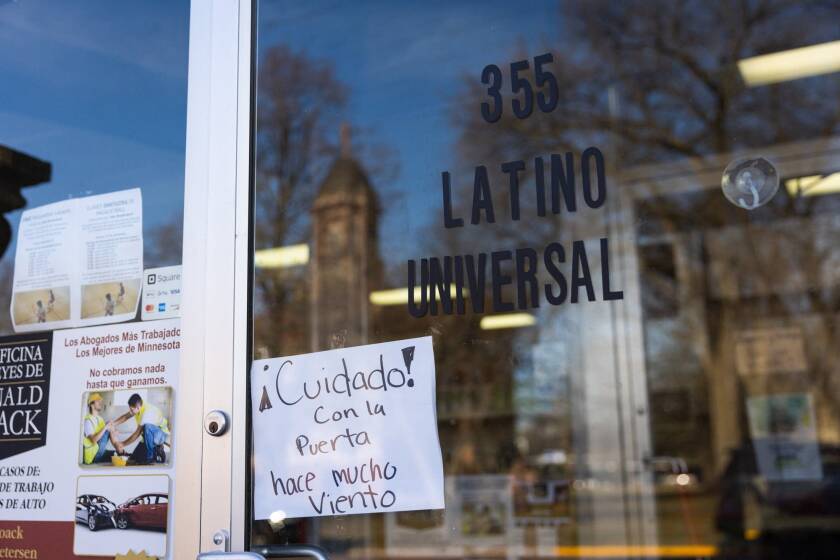 355
LATINO
UNIVERSAL
¡Cuidado!
Con la
Puerta
hace mucho
Viento
Square
VISA
Los Abogados Más Trabajado
Los Mejores de Minnesota
No cobramos nada
hasta que ganamos.
FICINA
EYES DE
NALD
ACK
CASOS DE:
DE TRABAJO
S DE AUTO
oack
etersen